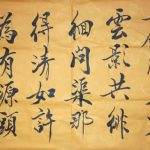 雲影共徘
徊問渠那
得清如許
為有源頭